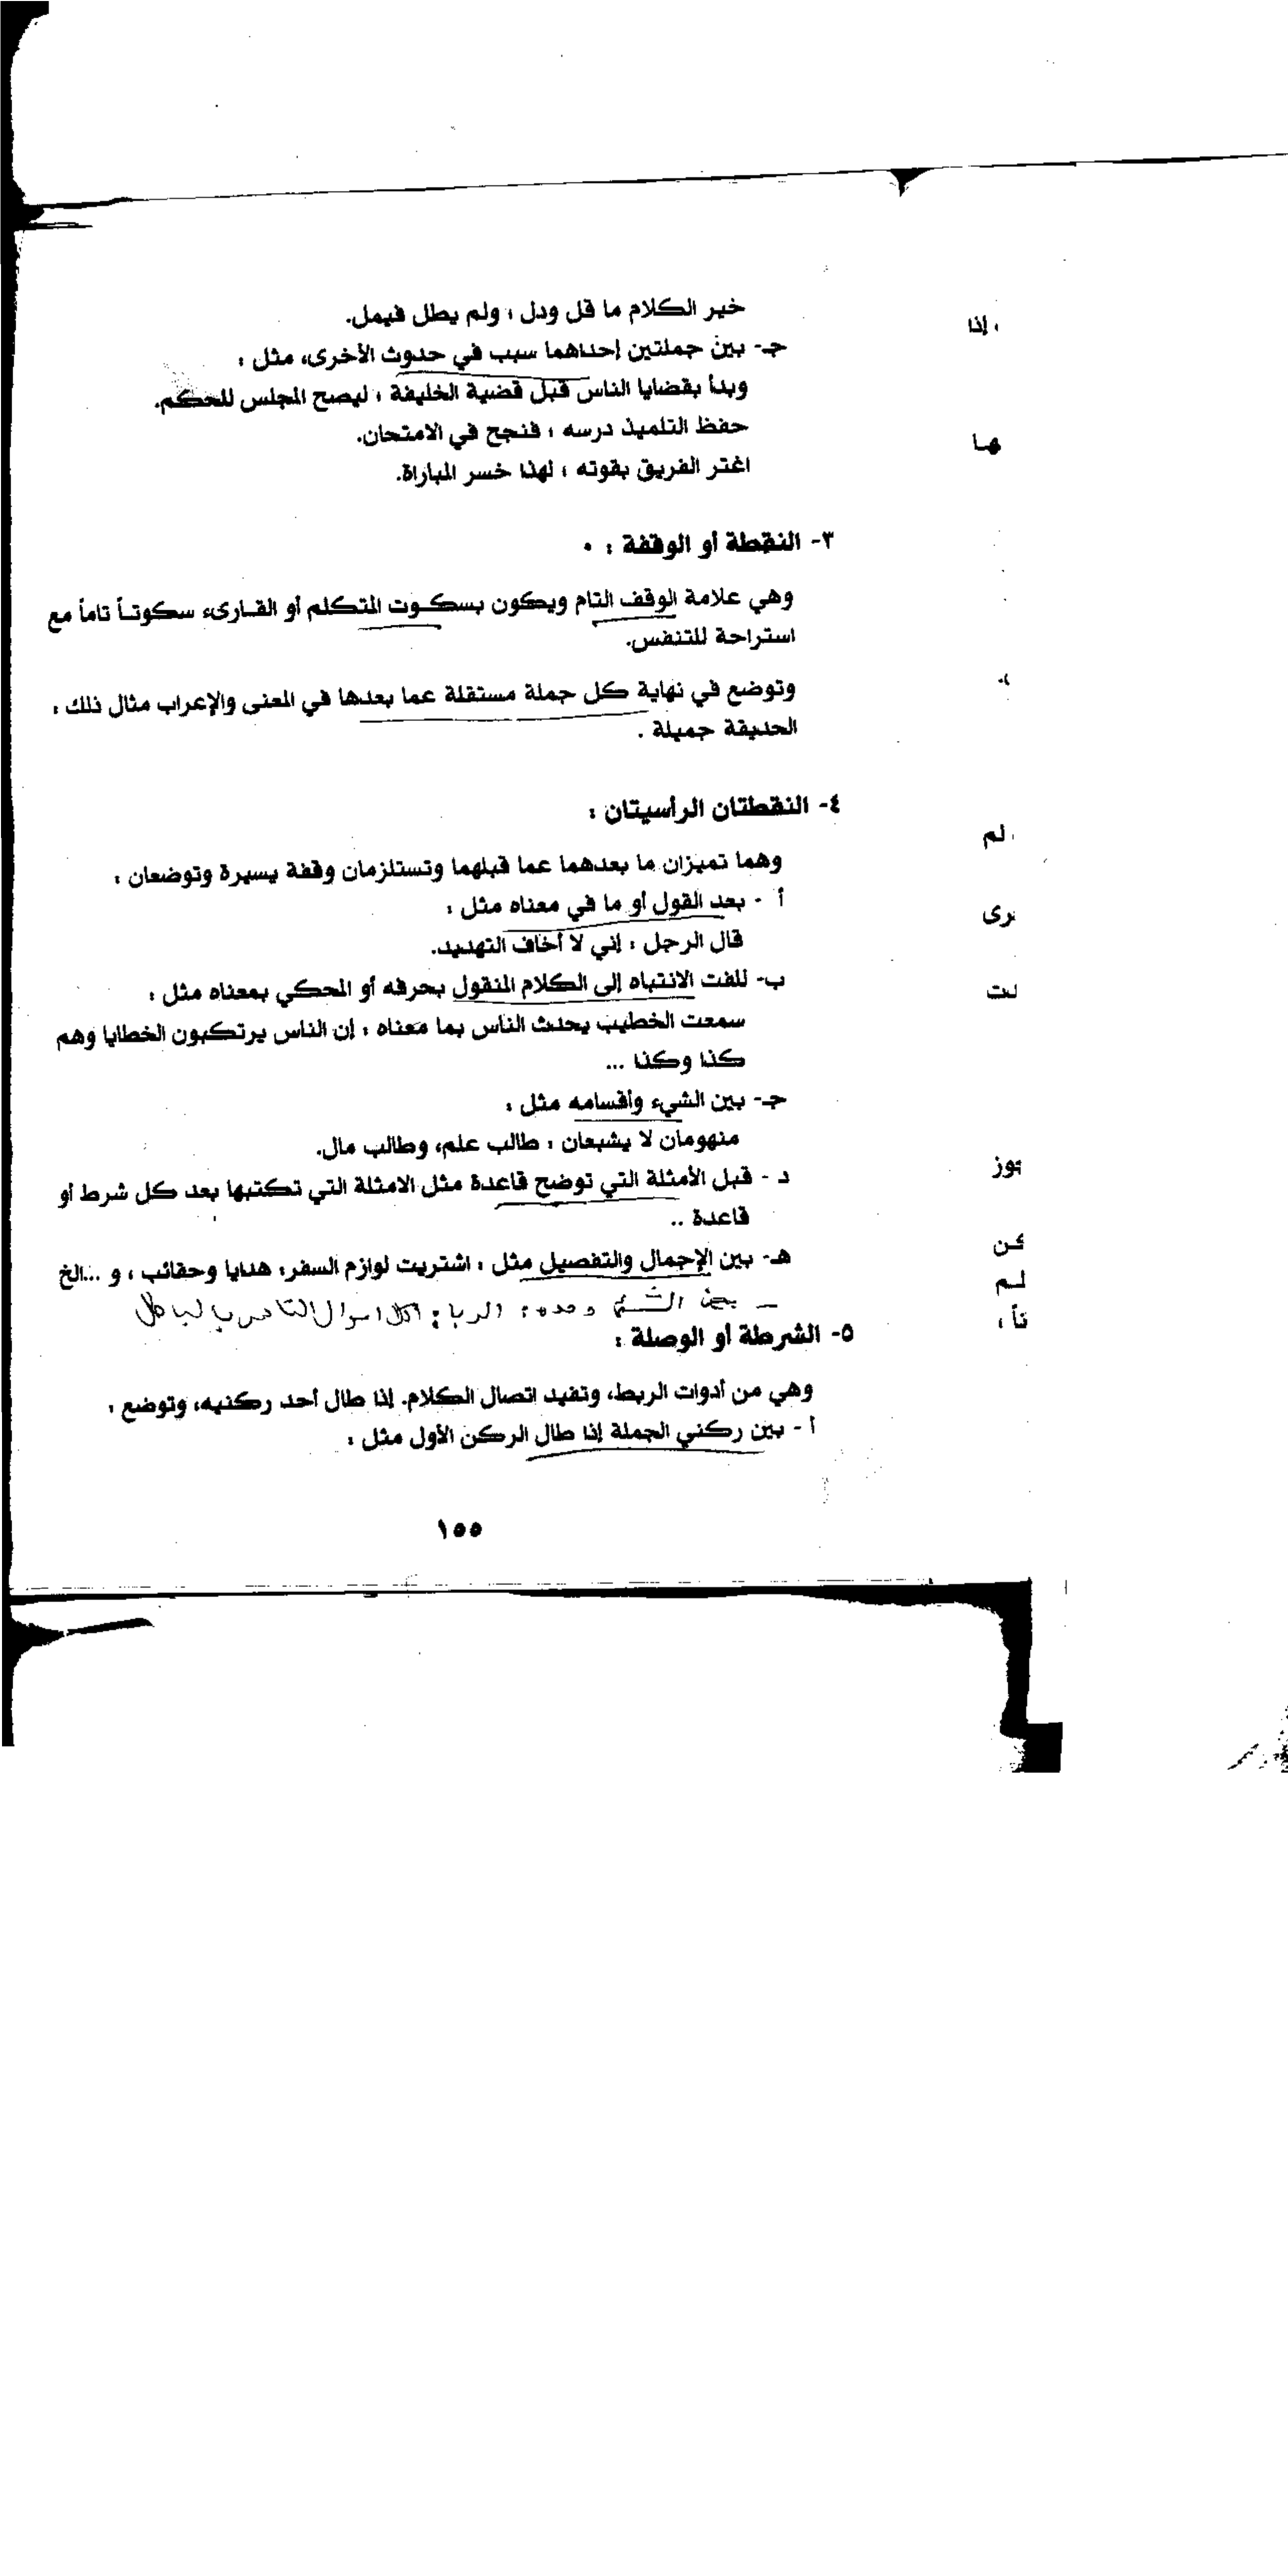 خير الكلام ما قل ودل ؛ ولم يطل فيمل.
جـ- بين جملتين إحداهما سبب في حدوث الأخرى، مثل :
وبدأ بقضايا الناس قبل قضية الخليفة ؛ ليصح المجلس للحكم.
حفظ التلميذ درسه ؛ فنجح في الامتحان.
اغتر الفريق بقوته ؛ لهذا خسر المباراة.
٣- النقطة أو الوقفة : .
وهي علامة الوقف التام ويكون بسكوت المتكلم أو القارىء سكوتاً تاماً مع
استراحة للتنفس.
وتوضع في نهاية كل جملة مستقلة عما بعدها في المعنى والإعراب مثال ذلك :
الحديقة جميلة .
٤- النقطتان الرأسيتان :
وهما تميزان ما بعدهما عما قبلهما وتستلزمان وقفة يسيرة وتوضعان :
أ - بعد القول أو ما في معناه مثل :
قال الرجل : إني لا أخاف التهديد.
ب- للفت الانتباه إلى الكلام المنقول بحرفه أو المحكي بمعناه مثل :
سمعت الخطيب يحدث الناس بما معناه : إن الناس يرتكبون الخطايا وهم
كذا وكذا ...
جـ- بين الشيء وأقسامه مثل :
منهومان لا يشبعان : طالب علم، وطالب مال.
د - قبل الأمثلة التي توضح قاعدة مثل الامثلة التي تكتبها بعد كل شرط أو
قاعدة ..
هـ- بين الإجمال والتفصيل مثل : اشتريت لوازم السفر: هدايا وحقائب ، و ...الخ
– بين الشيء وحده: الربا: اكل اموال الناس بالباطل
٥- الشرطة أو الوصلة :
وهي من أدوات الربط، وتفيد اتصال الكلام. إذا طال أحد ركنيه، وتوضع :
أ - بين ركني الجملة إذا طال الركن الأول مثل :
١٥٥